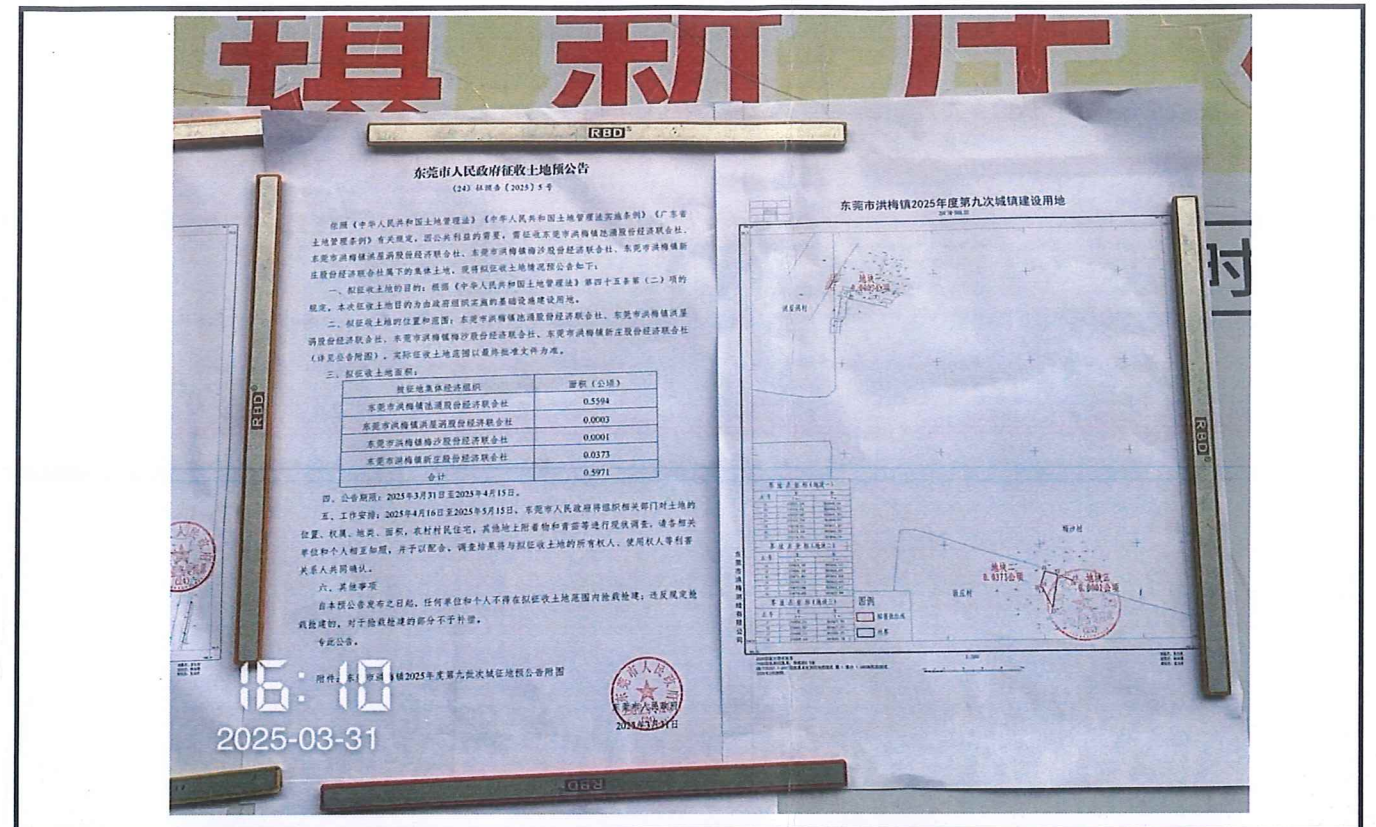 镇新庄
RBD
东莞市人民政府征收土地预公告
(24) 征预告〔2025〕5 号
依照《中华人民共和国土地管理法》《中华人民共和国土地管理法实施条例》《广东省
土地管理条例》有关规定，因公共利益的需要，需征收东莞市洪梅镇氹涌股份经济联合社、
东莞市洪梅镇洪屋涡股份经济联合社、东莞市洪梅镇梅沙股份经济联合社、东莞市洪梅镇新
庄股份经济联合社属下的集体土地，现将拟征收土地情况预公告如下：
一、拟征收土地的目的：根据《中华人民共和国土地管理法》第四十五条第（二）项的
规定，本次征收土地目的为由政府组织实施的基础设施建设用地。
二、拟征收土地的位置和范围：东莞市洪梅镇氹涌股份经济联合社、东莞市洪梅镇洪屋
涡股份经济联合社、东莞市洪梅镇梅沙股份经济联合社、东莞市洪梅镇新庄股份经济联合社
（详见公告附图）。实际征收土地范围以最终批准文件为准。
三、拟征收土地面积：
被征地集体经济组织 面积（公顷）
东莞市洪梅镇氹涌股份经济联合社 0.5594
东莞市洪梅镇洪屋涡股份经济联合社 0.0003
东莞市洪梅镇梅沙股份经济联合社 0.0001
东莞市洪梅镇新庄股份经济联合社 0.0373
合计 0.5971
四、公告期限：2025年3月31日至2025年4月15日。
五、工作安排：2025年4月16日至2025年5月15日，东莞市人民政府将组织相关部门对土地的
位置、权属、地类、面积，农村村民住宅，其他地上附着物和青苗等进行现状调查，请各相关
单位和个人相互知照，并予以配合，调查结果将与拟征收土地的所有权人、使用权人等利害
关系人共同确认。
六、其他事项
自本预公告发布之日起，任何单位和个人不得在拟征收土地范围内抢栽抢建；违反规定抢
栽抢建的，对于抢栽抢建的部分不予补偿。
专此公告。
附件：东莞市洪梅镇2025年度第九批次城征地预公告附图
东莞市人民政府
2025年3月31日
16:10
2025-03-31
RBD
RBD
东莞市洪梅镇2025年度第九次城镇建设用地
地块一
洪屋涡村
梅沙村
地块二
0.0373公顷
地块三
0.0001公顷
新庄村
图例
村界
RBD
时